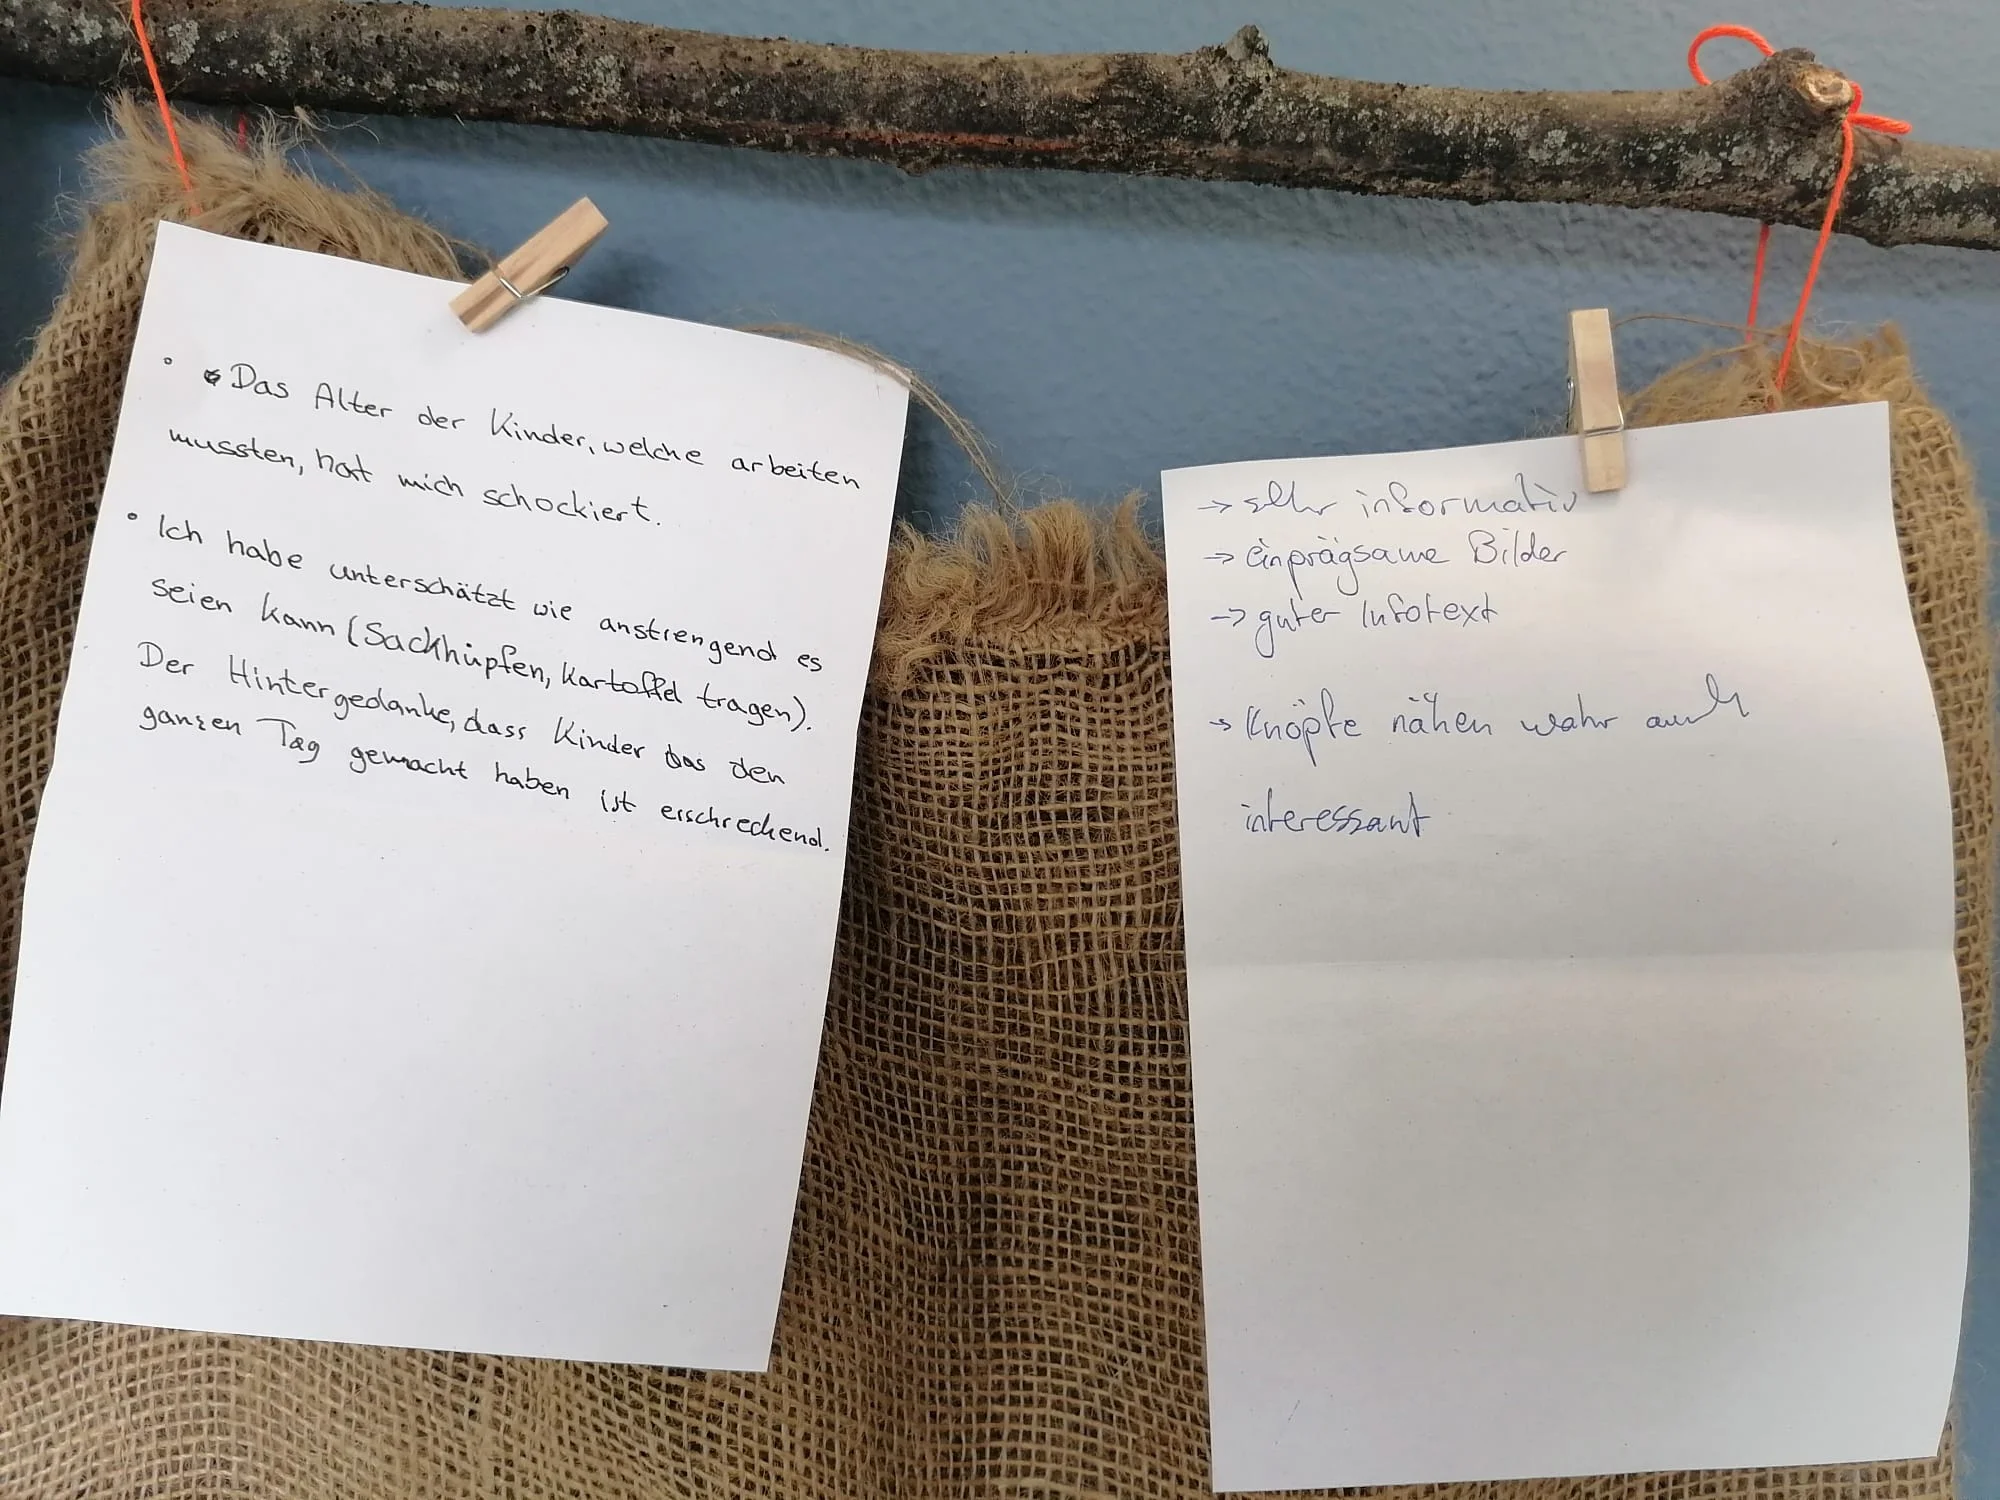 • Das Alter der Kinder, welche arbeiten
mussten, hat mich schockiert.
• Ich habe unterschätzt wie anstrengend es
seien kann (Sackhüpfen, Kartoffel tragen).
Der Hintergedanke, dass Kinder das den
ganzen Tag gemacht haben ist erschreckend.
→ sehr informativ
→ einprägsame Bilder
→ guter Infotext
→ Knöpfe nähen wahr auch
interessant